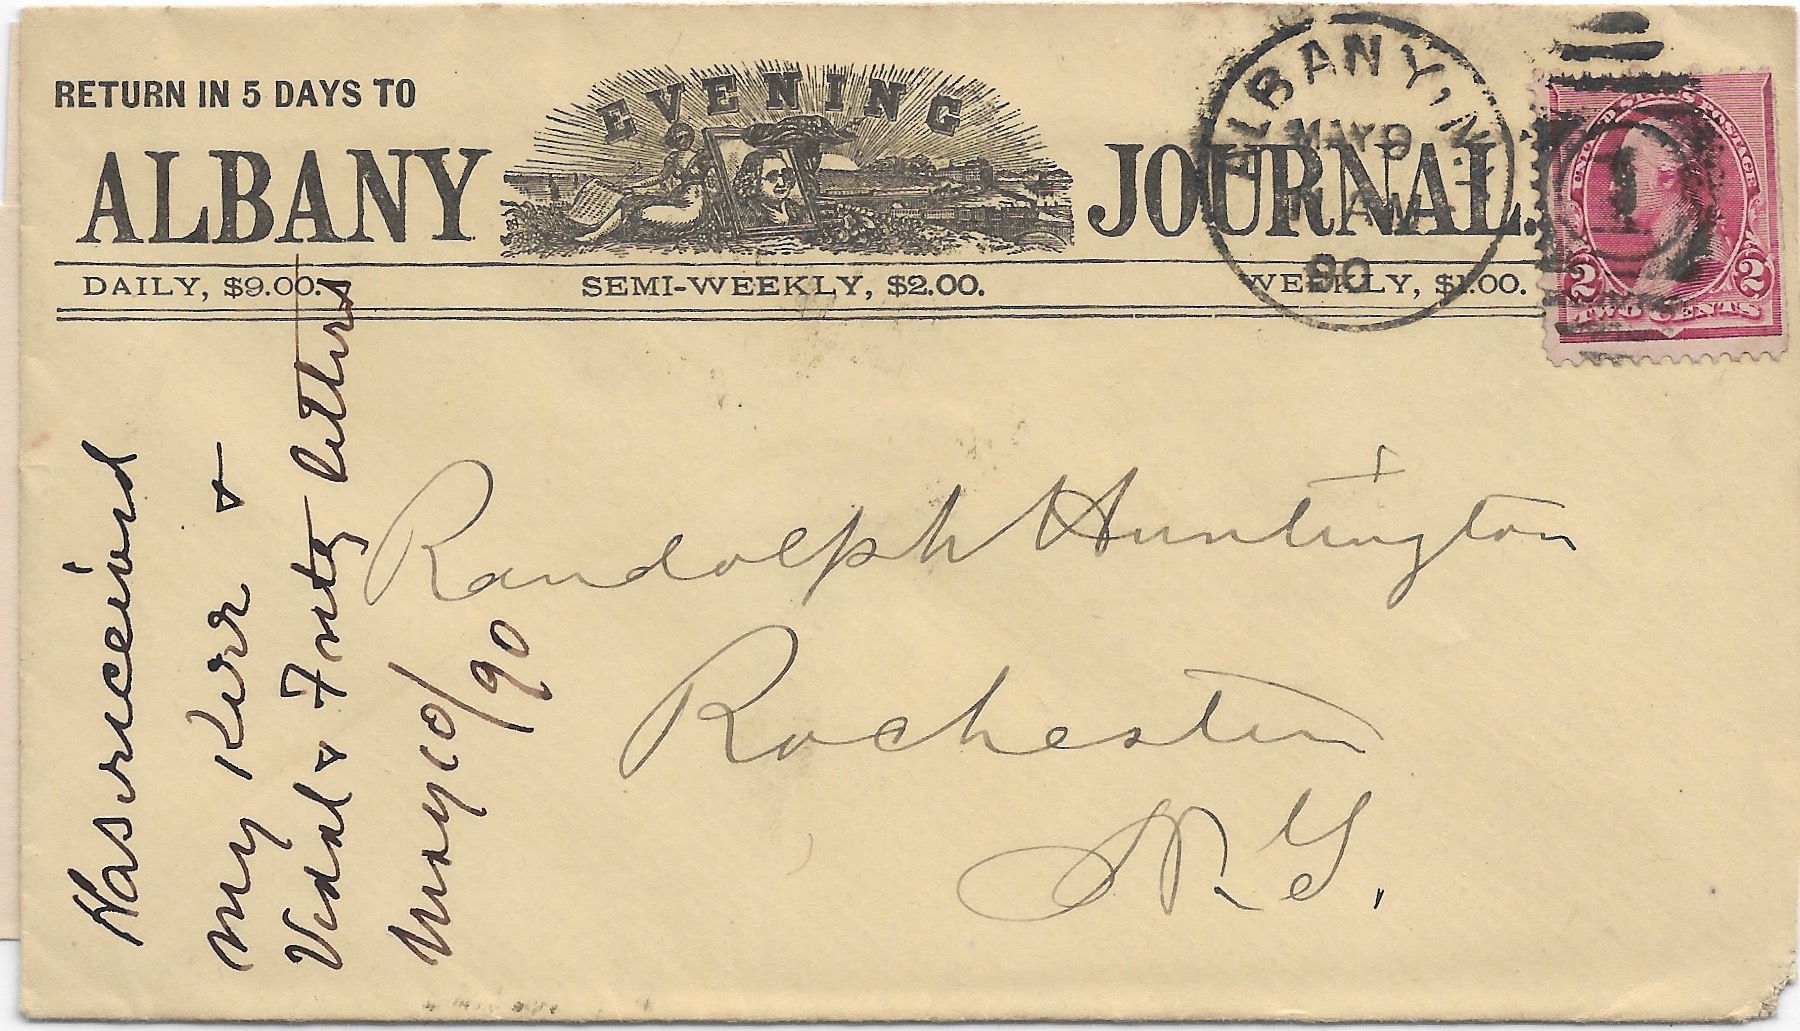 RETURN IN 5 DAYS TO
ALBANY EVENING JOURNAL.
DAILY, $9.00. SEMI-WEEKLY, $2.00. WEEKLY, $1.00.
ALBANY, N.Y.
MAY 9
AM
90
1
UNITED STATES POSTAGE
2 2
TWO CENTS
Randolph Huntington
Rochester
N.Y.
Has received
my Kerr &
Vidal & Fritz letters
May 10/90